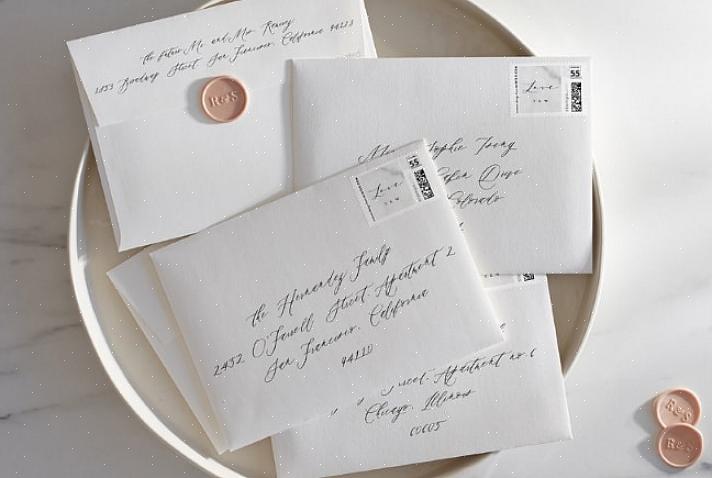 the Future Mr. and Mrs. Raney
1853 Broadway Street, San Francisco, California 94123
R&S
Love
55
Sophie Young
Drive
Colorado
Love
55
the Hernandez Family
2452 O'Farrell Street, Apartment 2
San Francisco, California
94110
Street, Apartment no. 6
Chicago, Illinois
60605
R&S
R&S